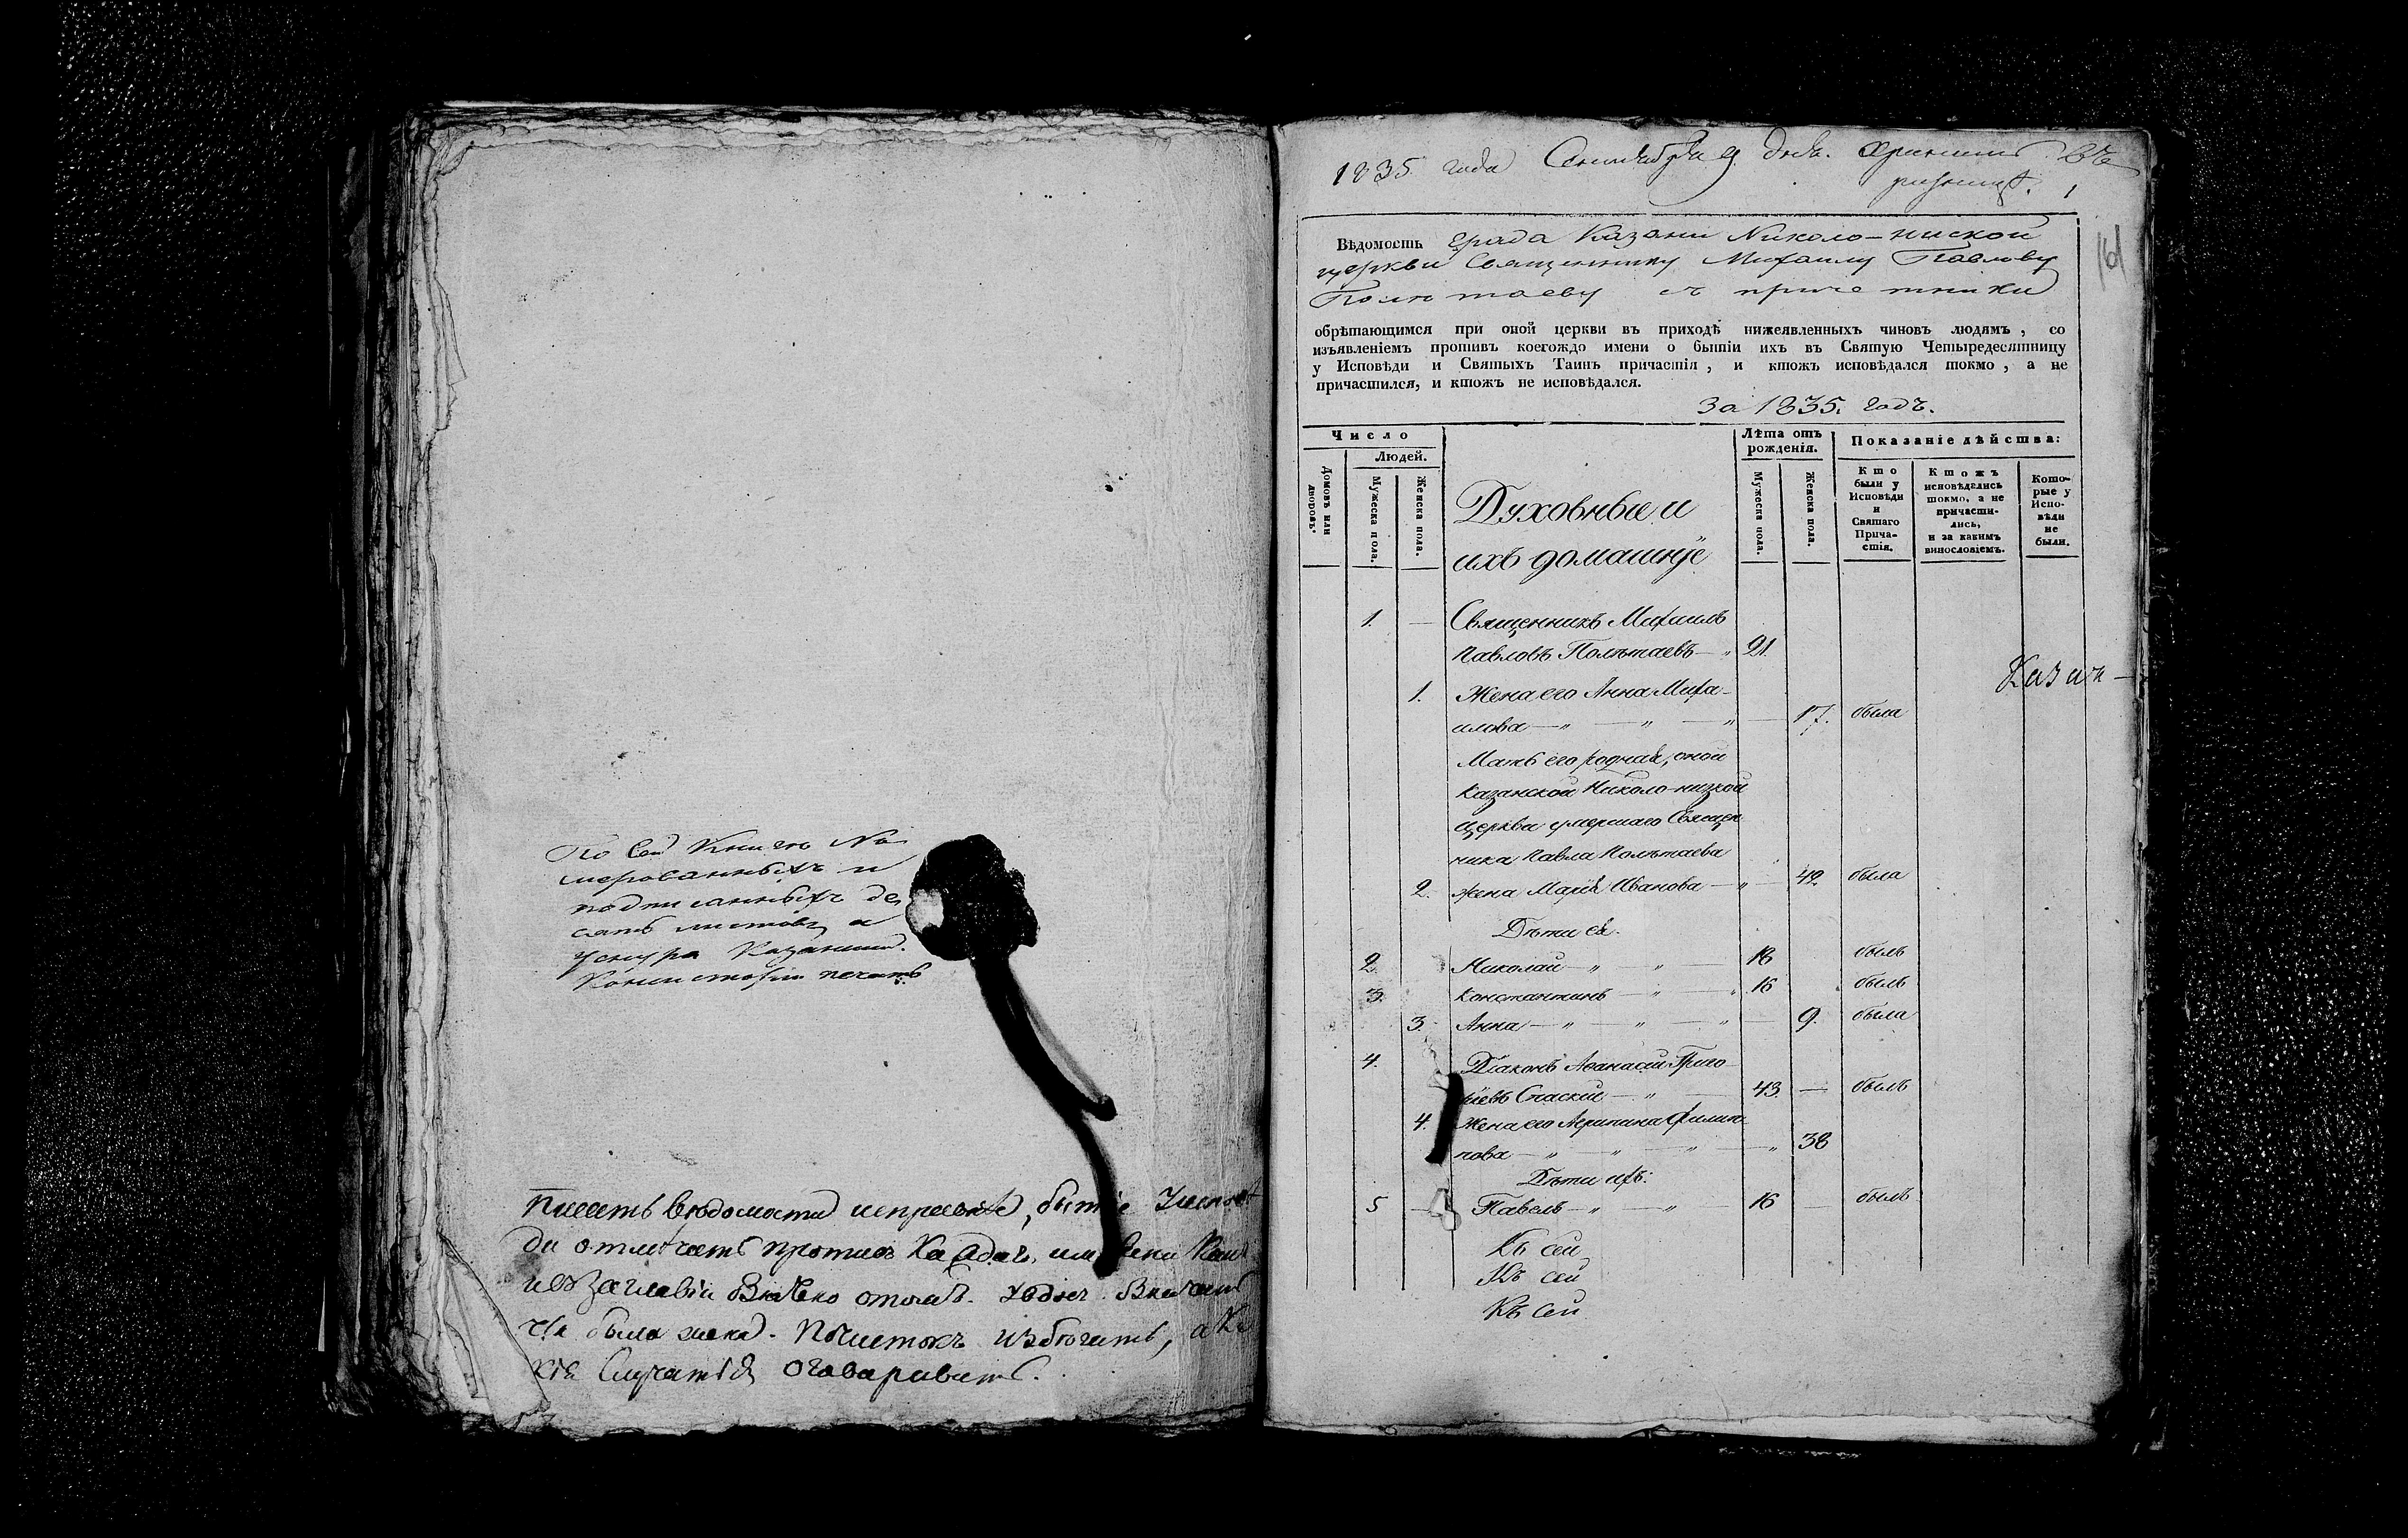 По сей книгѣ Ну
мерованныхъ и
подписанныхъ де
сять листовъ, а
у снура Казанской
Консисторіи печать
писать вѣдомости исправнѣе, бытіе у испове
ди отмечать противъ каждаго имяни какъ
и въ заглавіи
была жена. Почистокъ избегать, а ка
кія случатся оговаривать.
1835 года Сентября 9 дня. Хранить въ
ризницѣ. 1
161
Вѣдомость града Казани Николо-ниской
церкви Священнику Михаилу Павлову
Полѣтаеву съ причетники
обрѣтающимся при оной церкви въ приходѣ нижеявленныхъ чиновъ людямъ, со
изъявленіемъ противъ коегождо имени о бытіи ихъ въ Святую Четыредесятницу
у Исповѣди и Святыхъ Таинъ причастія, и ктожъ исповѣдался токмо, а не
причастился, и ктожъ не исповѣдался.
за 1835. годъ.
Число
Людей.
Домовъ или дворовъ.
Мужеска пола.
Женска пола.
Духовные и
ихъ домашніе
Лѣта отъ
рожденія.
Мужеска пола.
Женска пола.
Показаніе дѣйства:
Кто
были у
Исповѣди
и
Святаго
Прича-
стія.
Ктожъ
исповѣдались
токмо, а не
причасти-
лись,
и за какимъ
винословіемъ.
Кото-
рые у
Испо-
вѣди
не
были.
1. — Священникъ Михаилъ
Павловъ Полѣтаевъ — " 21.
Казан—
1. Жена его Анна Миха-
илова — " — " — " — 17. была
Мать его родная, оной
Казанской Николо-низкой
церкви умершаго Священ
ника Павла Полѣтаева
2. жена Марія Иванова — " — 42 была
Дѣти ея.
2. Николай — " — " — 18 былъ
3. Константинъ — " — " 16 былъ
3. Анна — " — " — " — 9. была
4. Діаконъ Аѳанасій Григо-
рьевъ Спаскій — " — 43. — былъ
4. Жена его Агрипина Филип-
пова — " — " — " — " 38
Дѣти ихъ:
5 — Павелъ — " — " — 16 — былъ
Къ сей
Къ сей
Къ сей